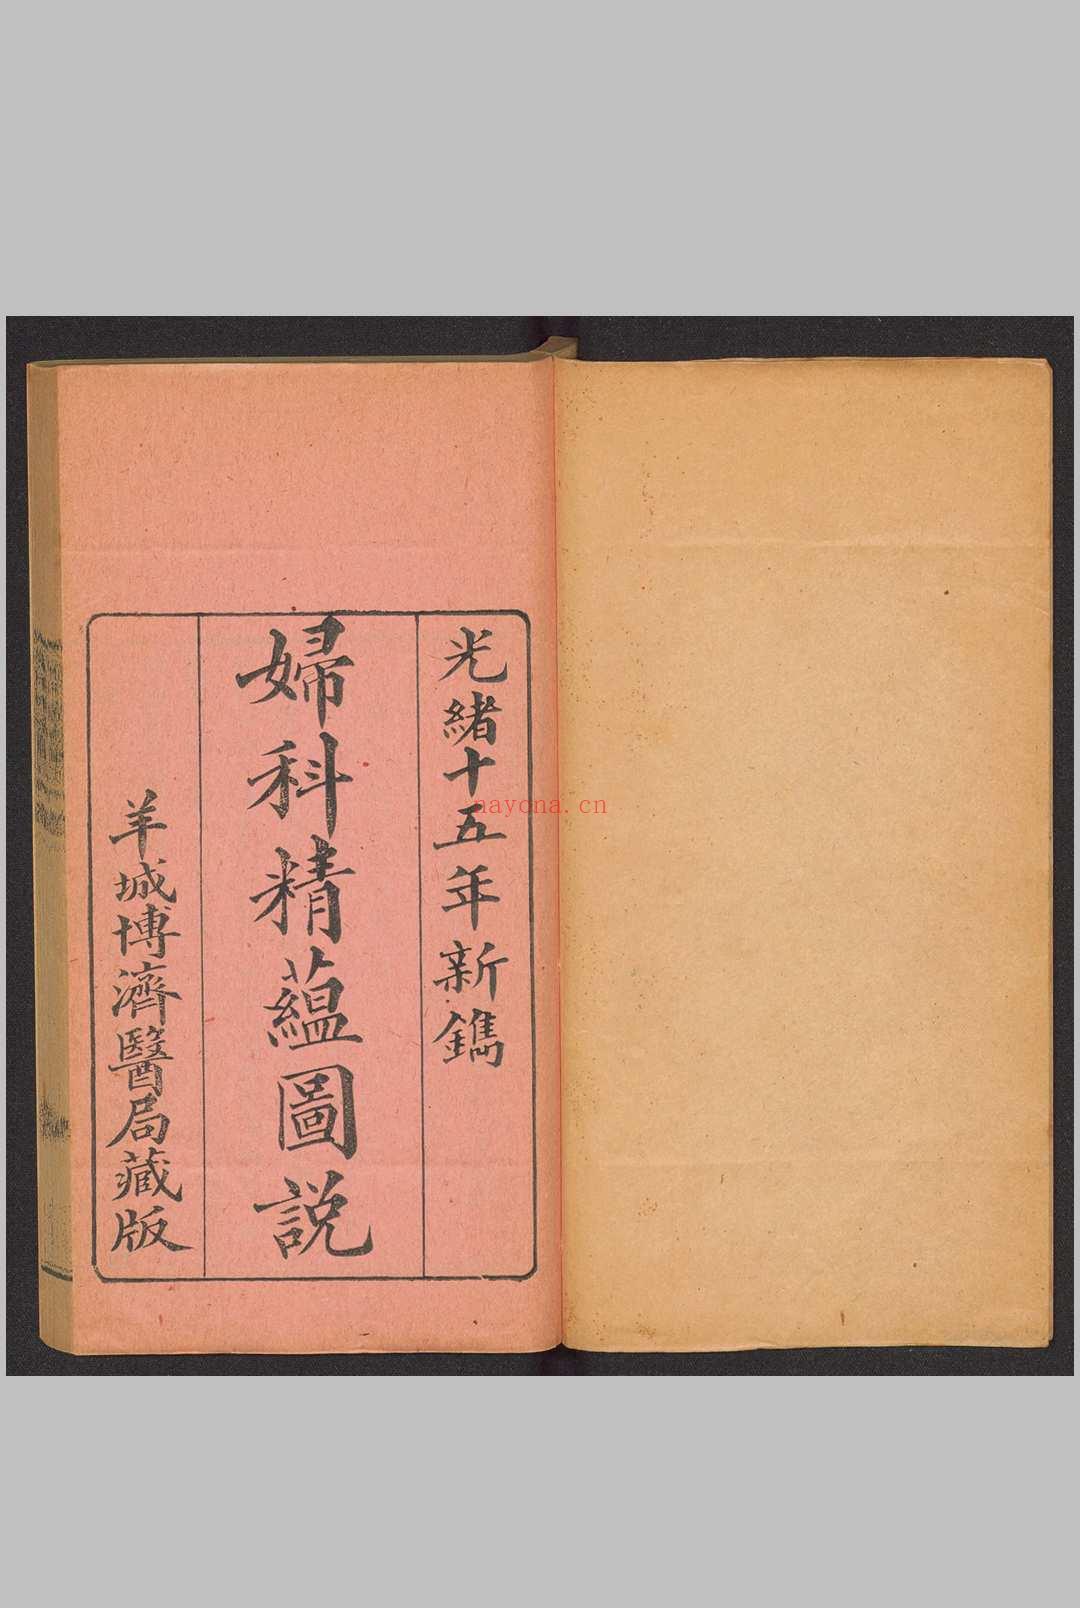 光緒十五年新鐫
婦科精蘊圖說
羊城博濟醫局藏版
naycna.cn